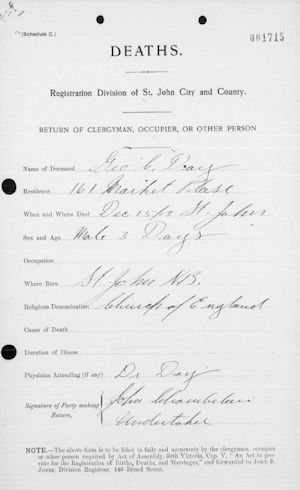 (Schedule C.)
001715
DEATHS.
Registration Division of St. John City and County.
RETURN OF CLERGYMAN, OCCUPIER, OR OTHER PERSON
Name of Deceased Geo C. Day
Residence 161 Market Place
When and Where Died Dec 15/13 St. John
Sex and Age Male 3 Days
Occupation
Where Born St John N.B.
Religious Denomination Church of England
Cause of Death
Duration of Illness
Physician Attending (if any) Dr Day
Signature of Party making Return, John Chamberlain
Undertaker
NOTE.—The above form is to be filled in fully and accurately by the clergyman, occupier
or other person required by Act of Assembly, 50th Victoria, Cap. V, "An Act to pro-
vide for the Registration of Births, Deaths, and Marriages," and forwarded to JOHN B.
JONES, Division Registrar, 140 Broad Street.